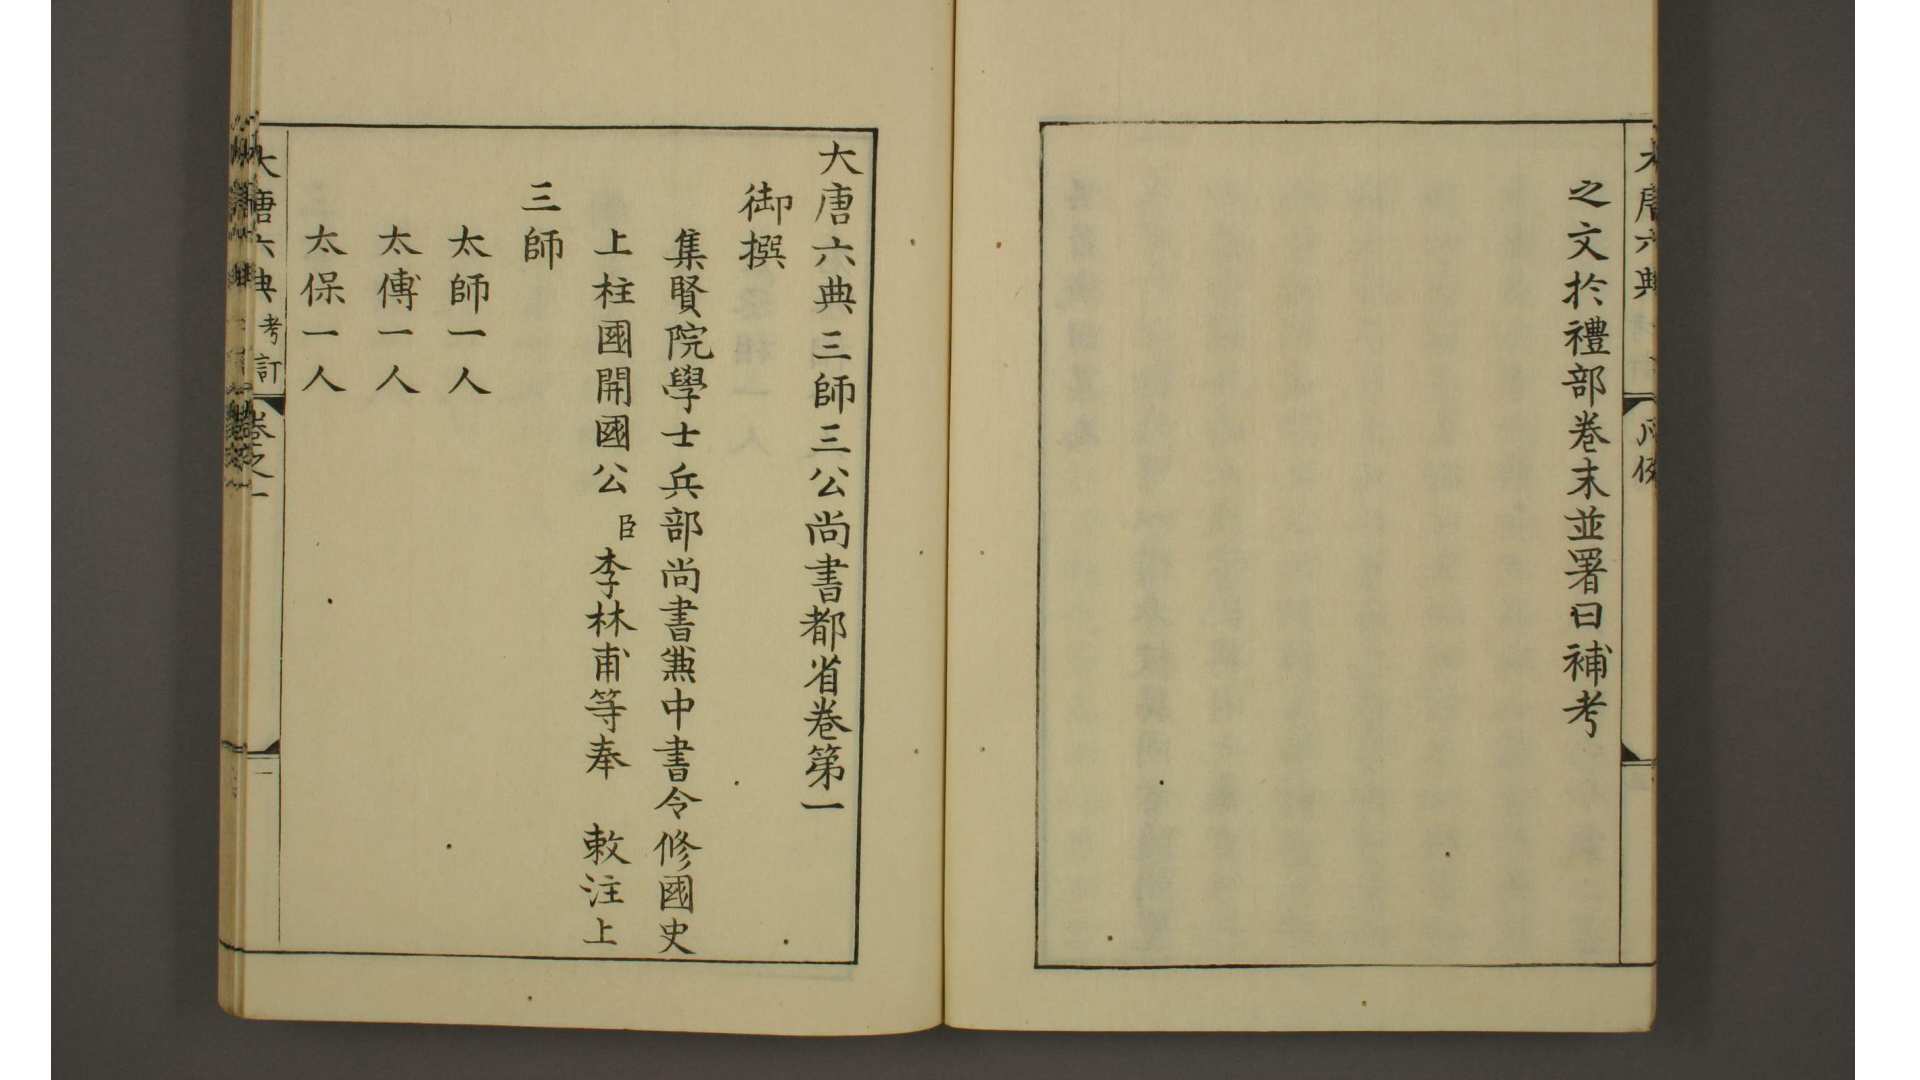 大唐六典
凡例
之文於禮部卷末並署曰補考
大唐六典三師三公尚書都省卷第一
御撰
集賢院學士兵部尚書兼中書令修國史
上柱國開國公臣李林甫等奉 敕注上
三師
太師一人
太傅一人
太保一人
大唐六典考訂
卷之一